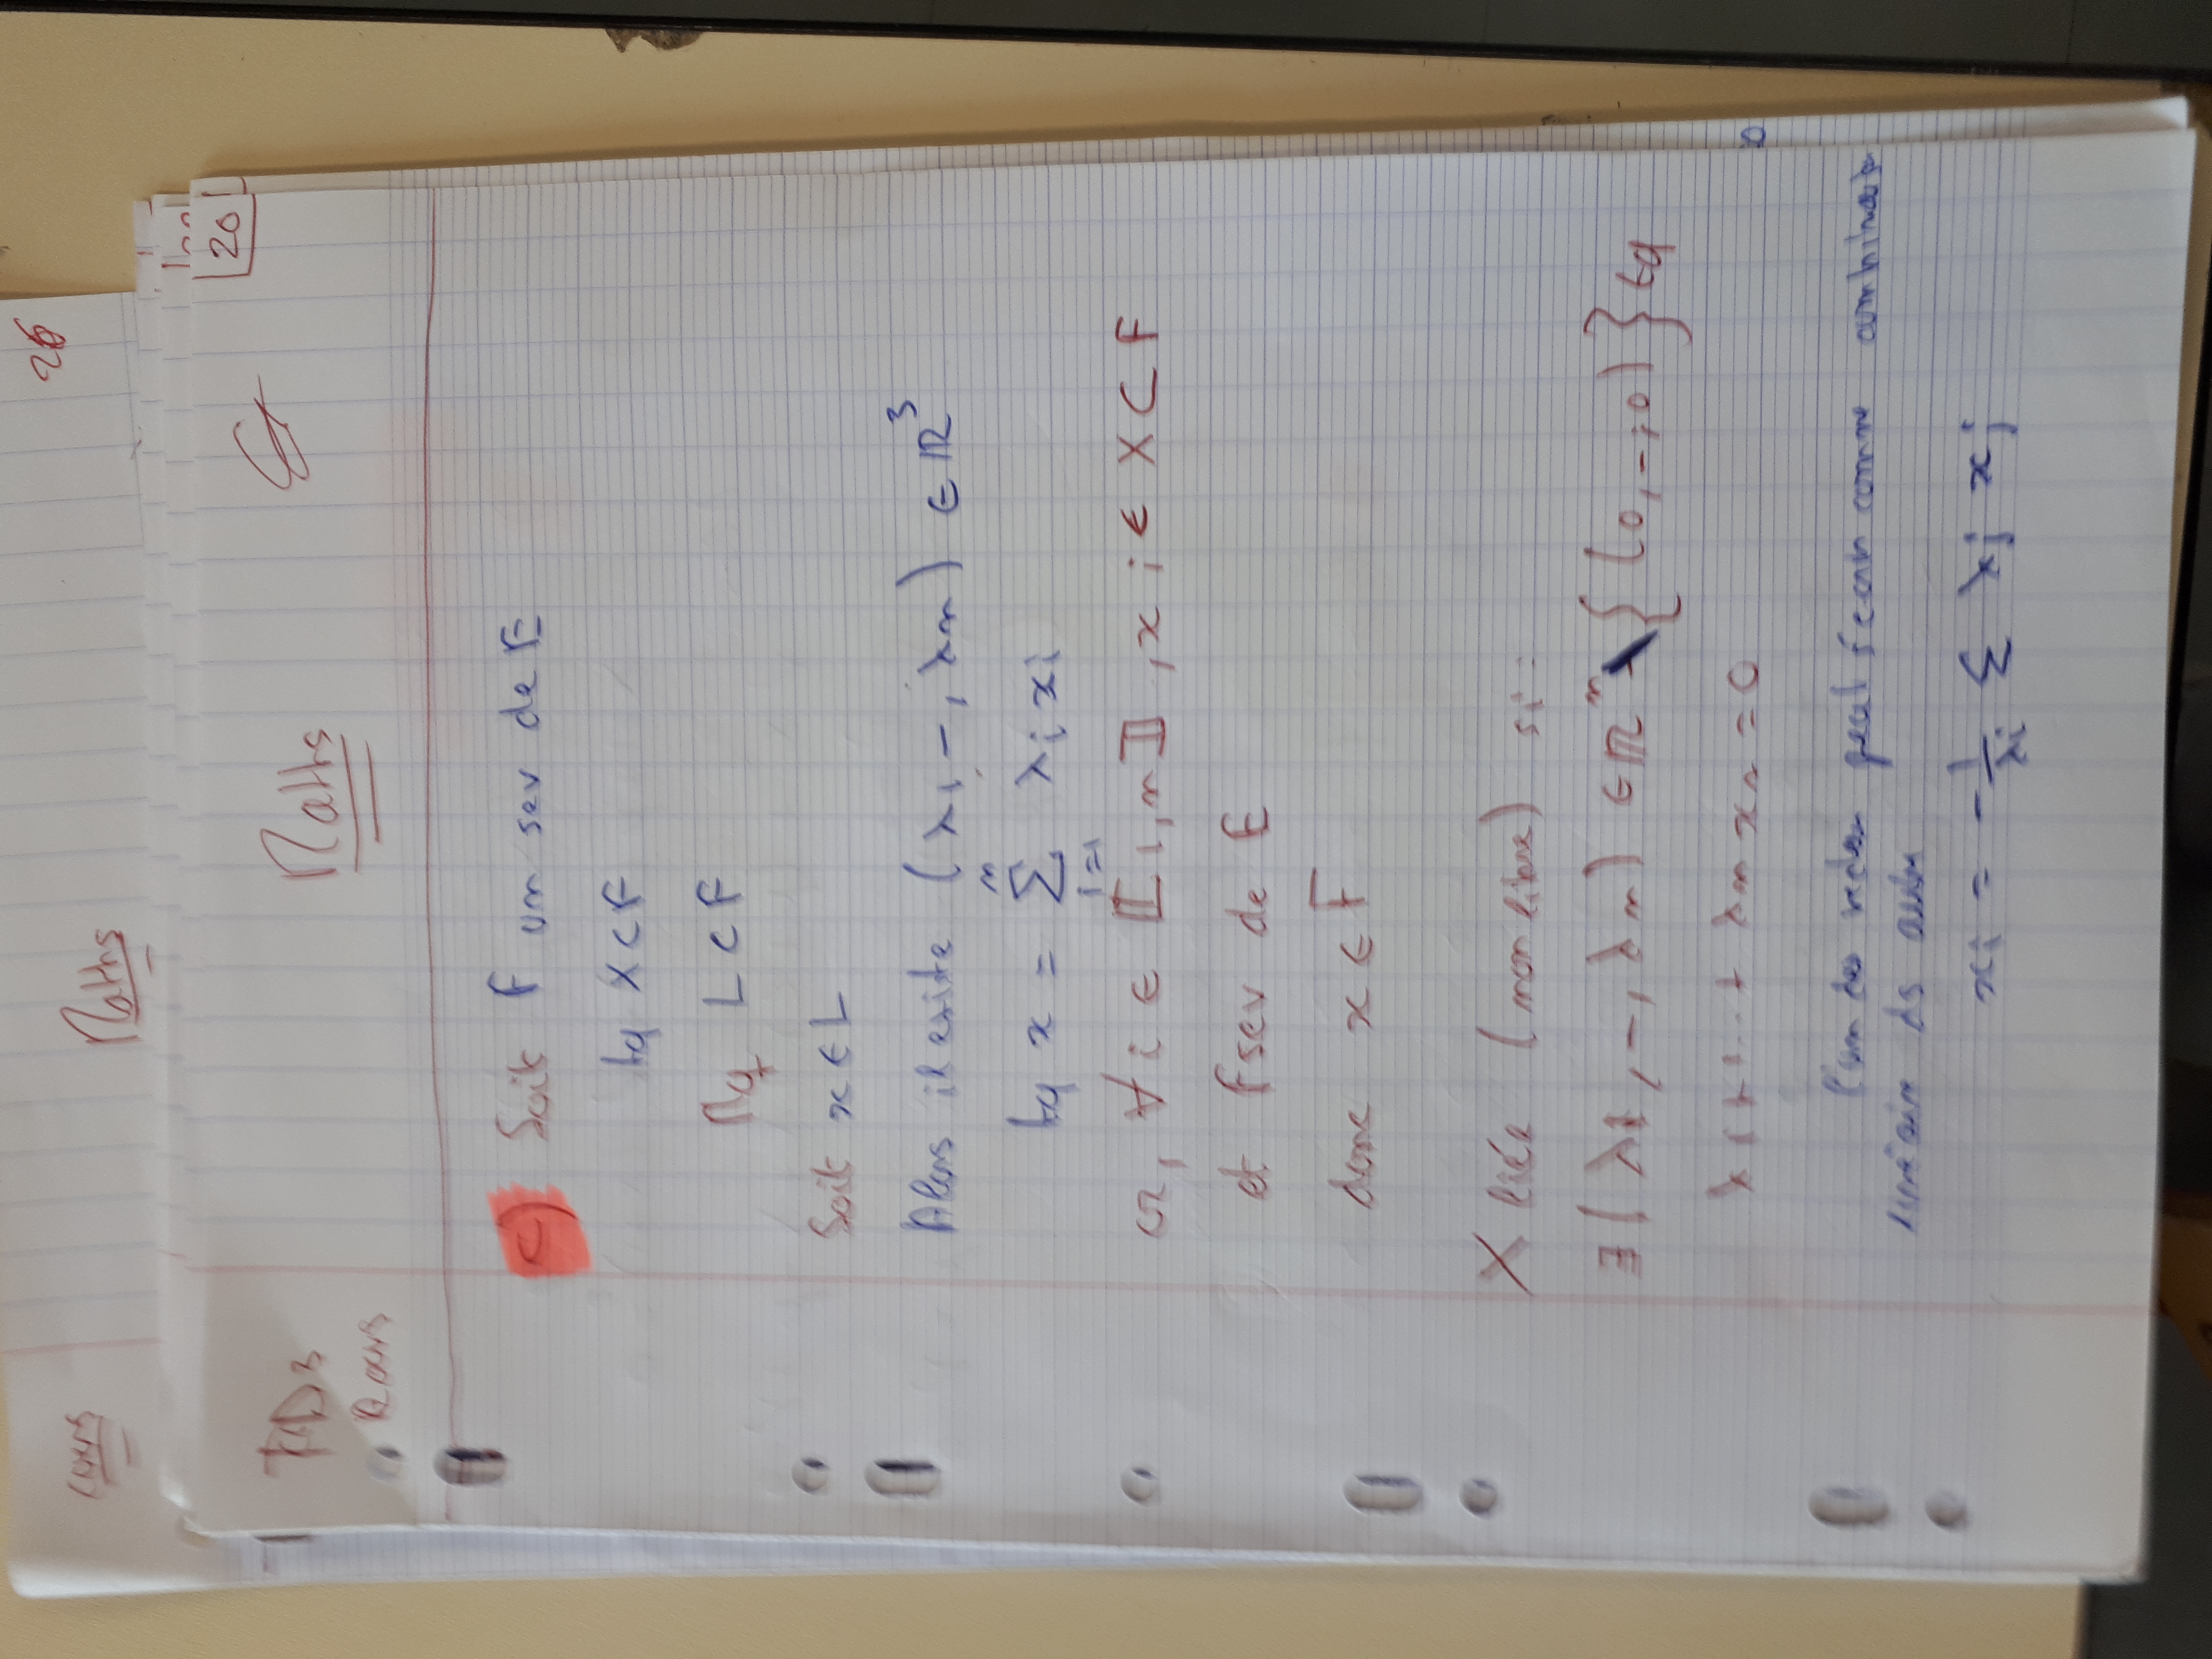 Cours Maths 26
TD3 Maths 20
c) Soit F un sev de E
tq X ⊂ F
Mq L ⊂ F
Soit x ∈ L
Alors il existe (λ1, -, λn) ∈ ℝ³
tq x = Σ_{i=1}^{n} λi xi
or, ∀ i ∈ ⟦1, n⟧, xi ∈ X ⊂ F
et F sev de E
donc x ∈ F
X liée (non libre) si :
∃ (λ1, -, λn) ∈ ℝⁿ \ {(0, -, 0)} tq
λ1 x1 + ... + λn xn = 0
l'un des vecteurs peut s'écrire comme combinaison
linéaire ds autres
xi = - 1/λi Σ λj xj